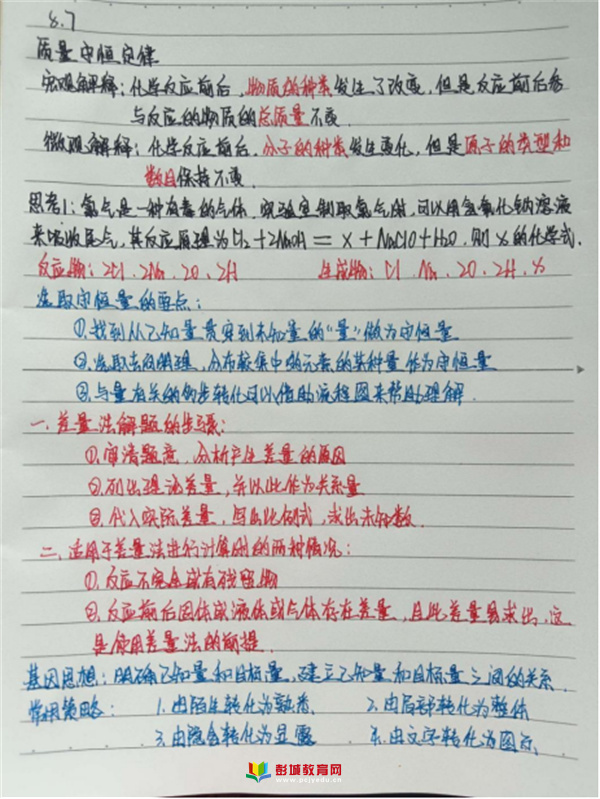 8.7
质量守恒定律
宏观解释：化学反应前后，物质的种类发生了改变，但是反应前后参
与反应的物质的总质量不变
微观解释：化学反应前后，分子的种类发生变化，但是原子的类型和
数目保持不变.
思考1：氯气是一种有毒的气体，实验室制取氯气时，可以用氢氧化钠溶液
来吸收尾气，其反应原理为Cl2+2NaOH=X+NaClO+H2O，则X的化学式.
反应物：2Cl、2Na、2O、2H 生成物：Cl、Na、2O、2H、X
选取守恒量的要点：
①找到从已知量贯穿到未知量的“量”做为守恒量
②选取去向明确，分布较集中的元素的某种量作为守恒量
③与量有关的多步转化可以借助流程图来帮助理解.
一.差量法解题的步骤：
①审清题意，分析产生差量的原因
②列出理论差量，并以此作为关系量
③代入实际差量，写出比例式，求出未知数.
二.适用于差量法进行计算则的两种情况：
①反应不完全或有残留物
②反应前后固体或液体或气体存在差量，且此差量易求出，这
是使用差量法的前提.
基因思想：明确已知量和目标量，建立已知量和目标量之间的关系.
常用策略： 1.由陌生转化为熟悉. 2.由局部转化为整体
3.由隐含转化为显露 4.由文字转化为图示.
彭城教育网
www.pcjyedu.cn